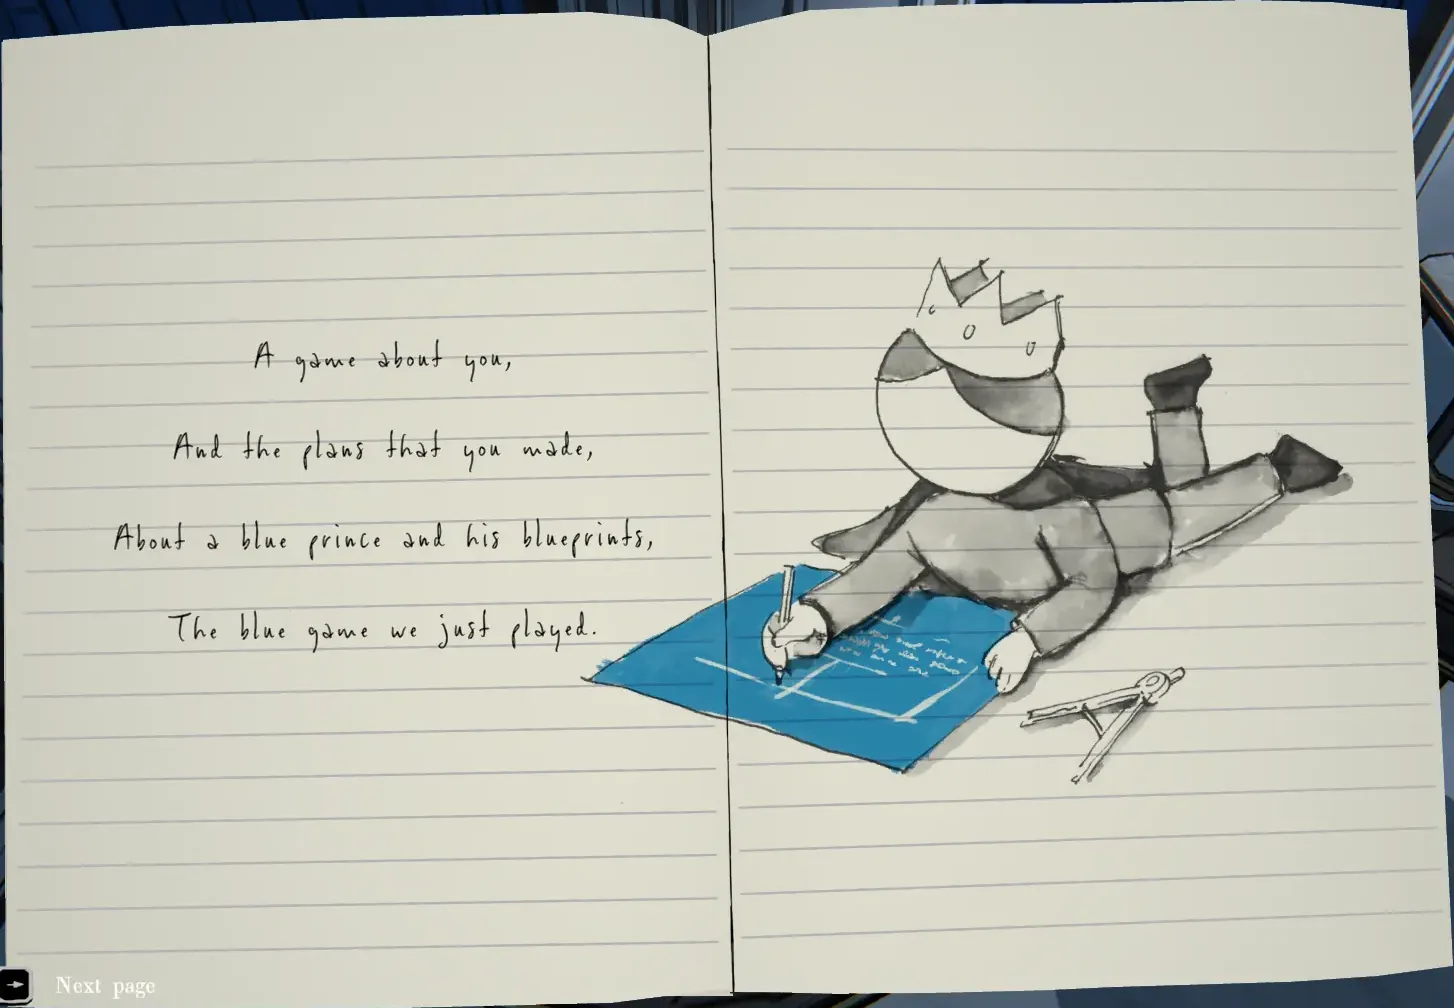 A game about you,
And the plans that you made,
About a blue prince and his blueprints,
The blue game we just played.
Next page